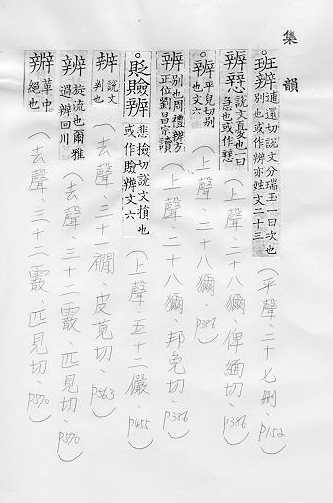 集韻
班辨 逋還切說文分瑞玉一曰次也別也或作辨亦姓文二十三（平聲．二十七刪．p152）
辡 說文憂也一曰急也或作（上聲．二十八獮．俾緬切．p386）
辨 平免切別也文六（上聲．二十八獮．p386）
辨 別也周禮辨方正位劉昌宗讀（上聲．二十八獮．邦免切．p386）
貶辨 悲檢切說文損也或作辨文六（上聲．五十二儼．p455）
辨 說文判也（去聲．三十一襉．皮莧切．p563）
辨 旋流也爾雅過辨回川（去聲．三十二霰．匹見切．p570）
辨 革中絕也（去聲．三十二霰．匹見切．p570）